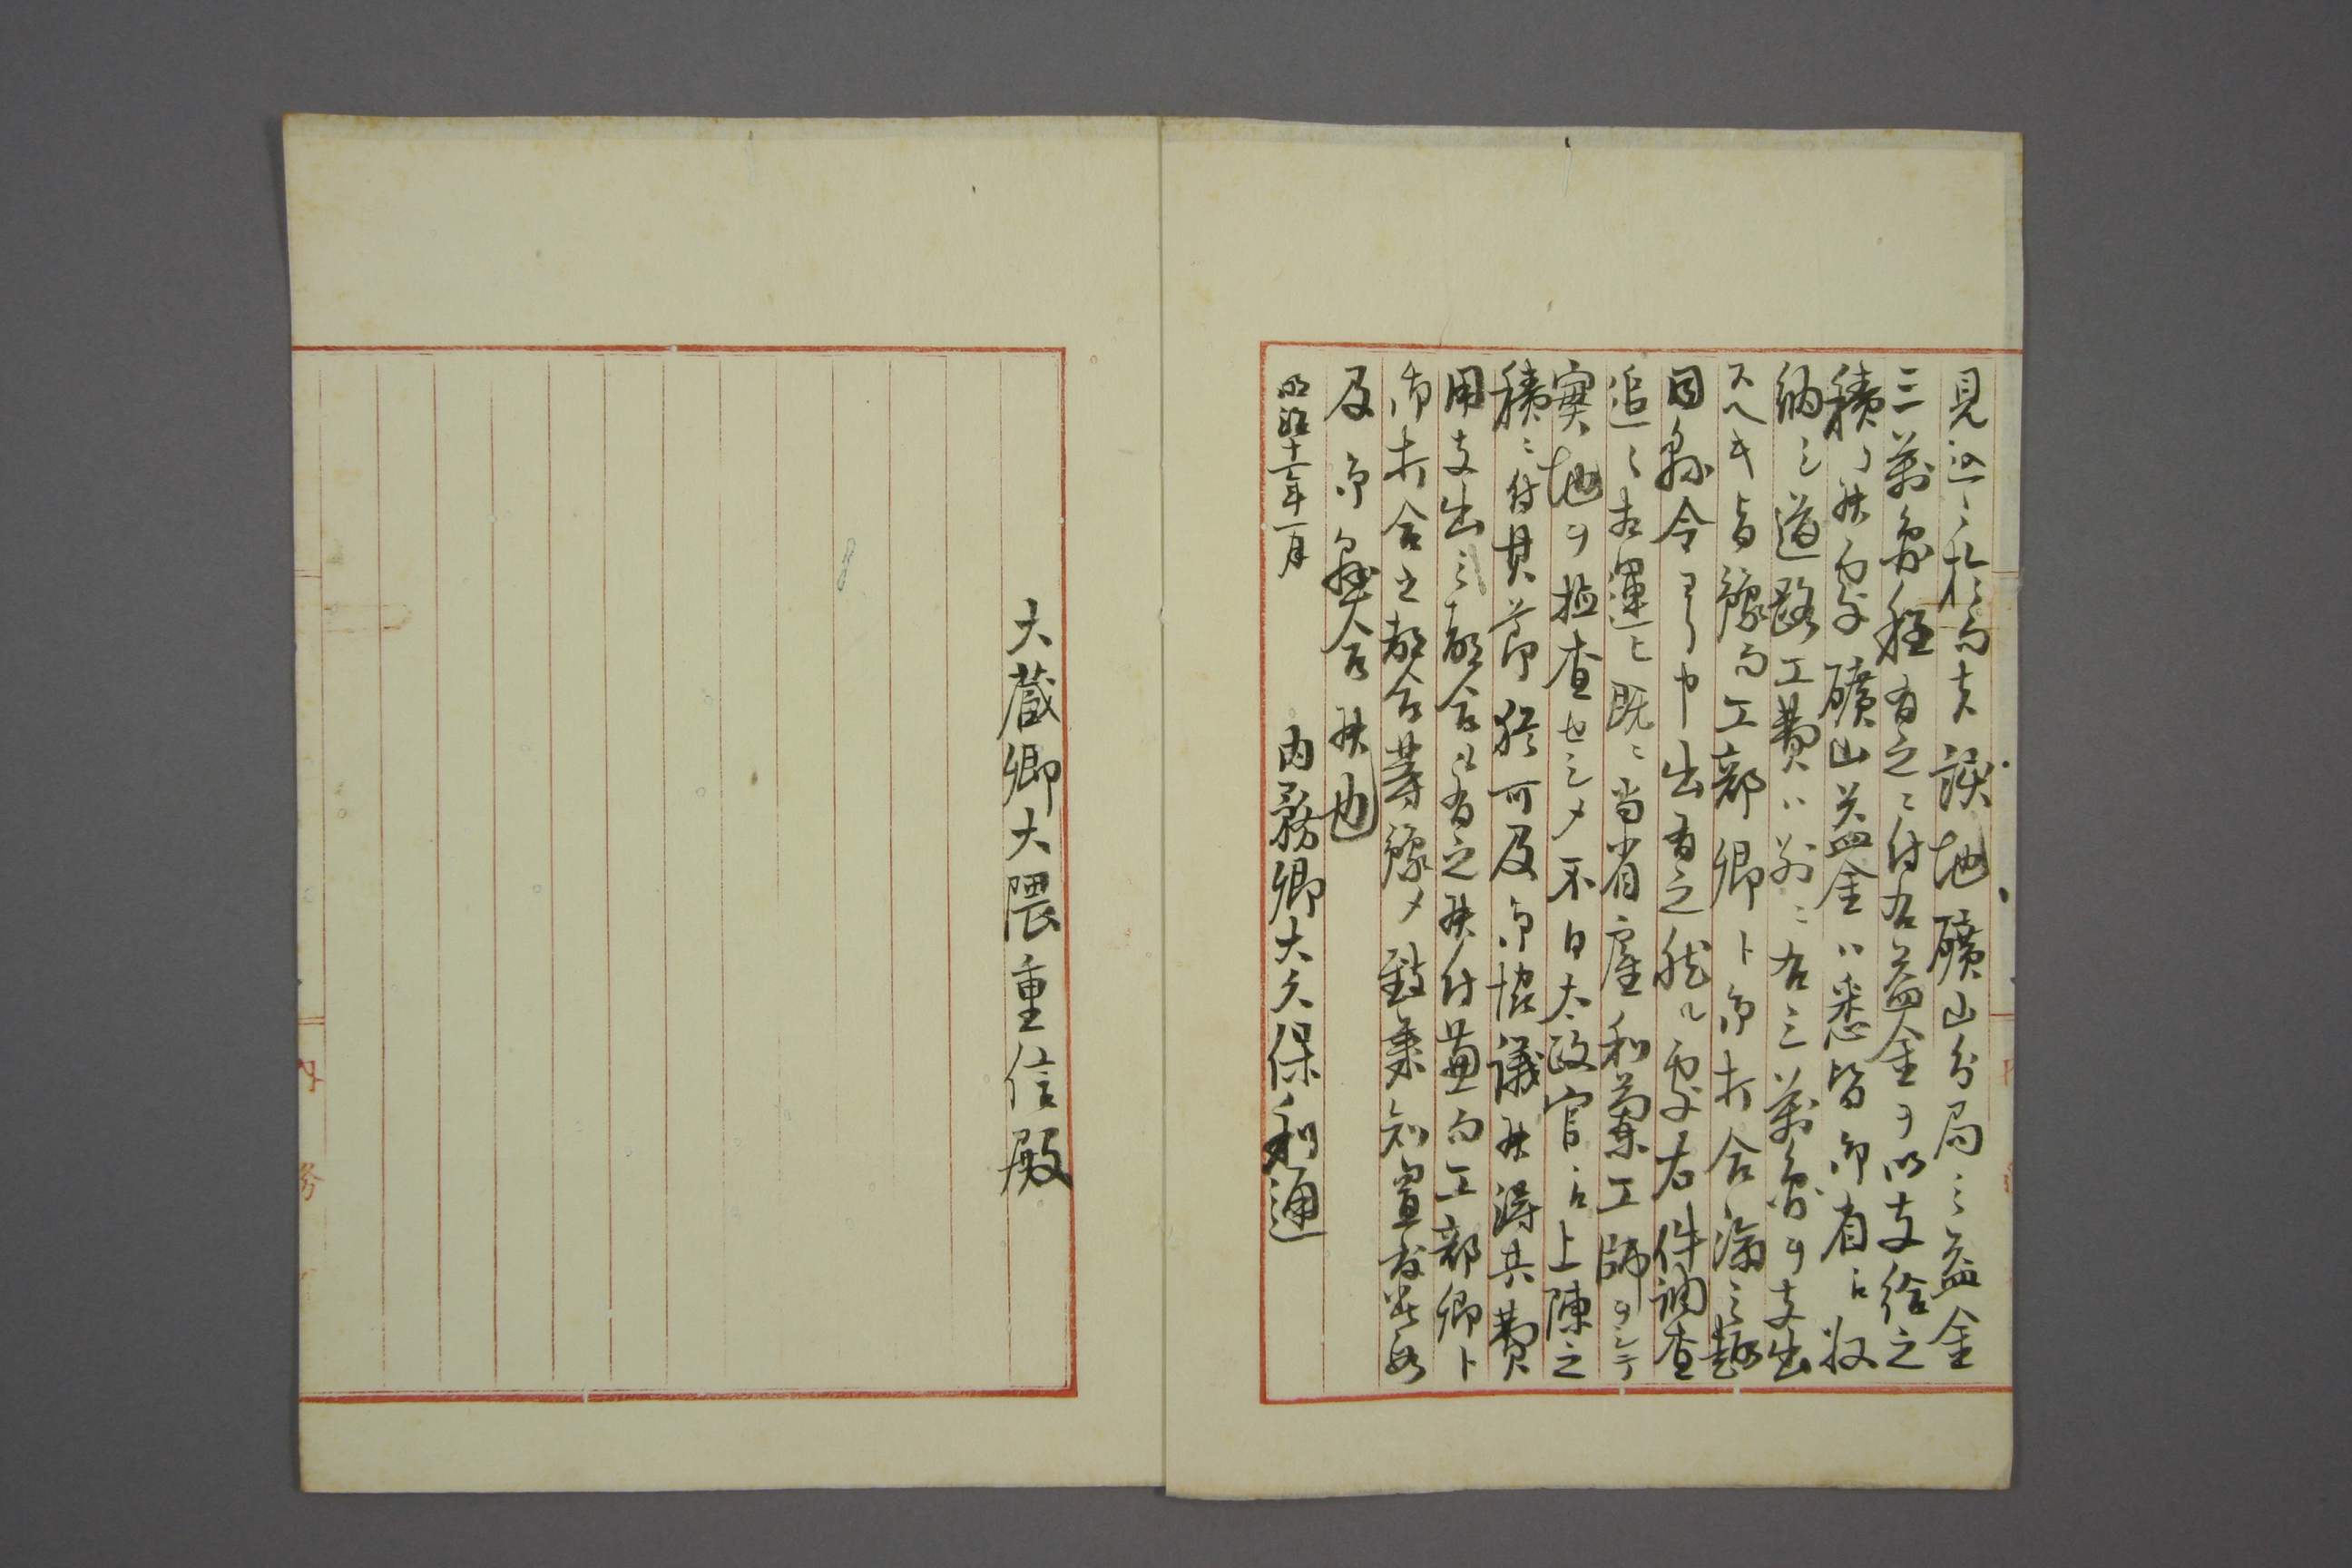 見込ニ於而者該地礦山分局之益金
三万円程有之ニ付右益金ヲ以支給之
積リ候処礦山益金ハ悉皆御省ニ収
納シ道路工費ハ別ニ右三万円ヲ支出
スヘキ旨豫而工部卿ト御打合済之趣
同県令ヨリ申出有之然ル処右件調査
追々相運ヒ既ニ当省雇和蘭工師ヲシテ
実地ヲ検査セシメ不日太政官ニ上陳之
積ニ付其節猶可及御協議候得共費
用支出之都合モ有之候付兼而工部卿ト
御打合之都合等豫メ致承知置度此段
及御照会候也
明治十一年一月
内務卿大久保利通
大蔵卿大隈重信殿
内務